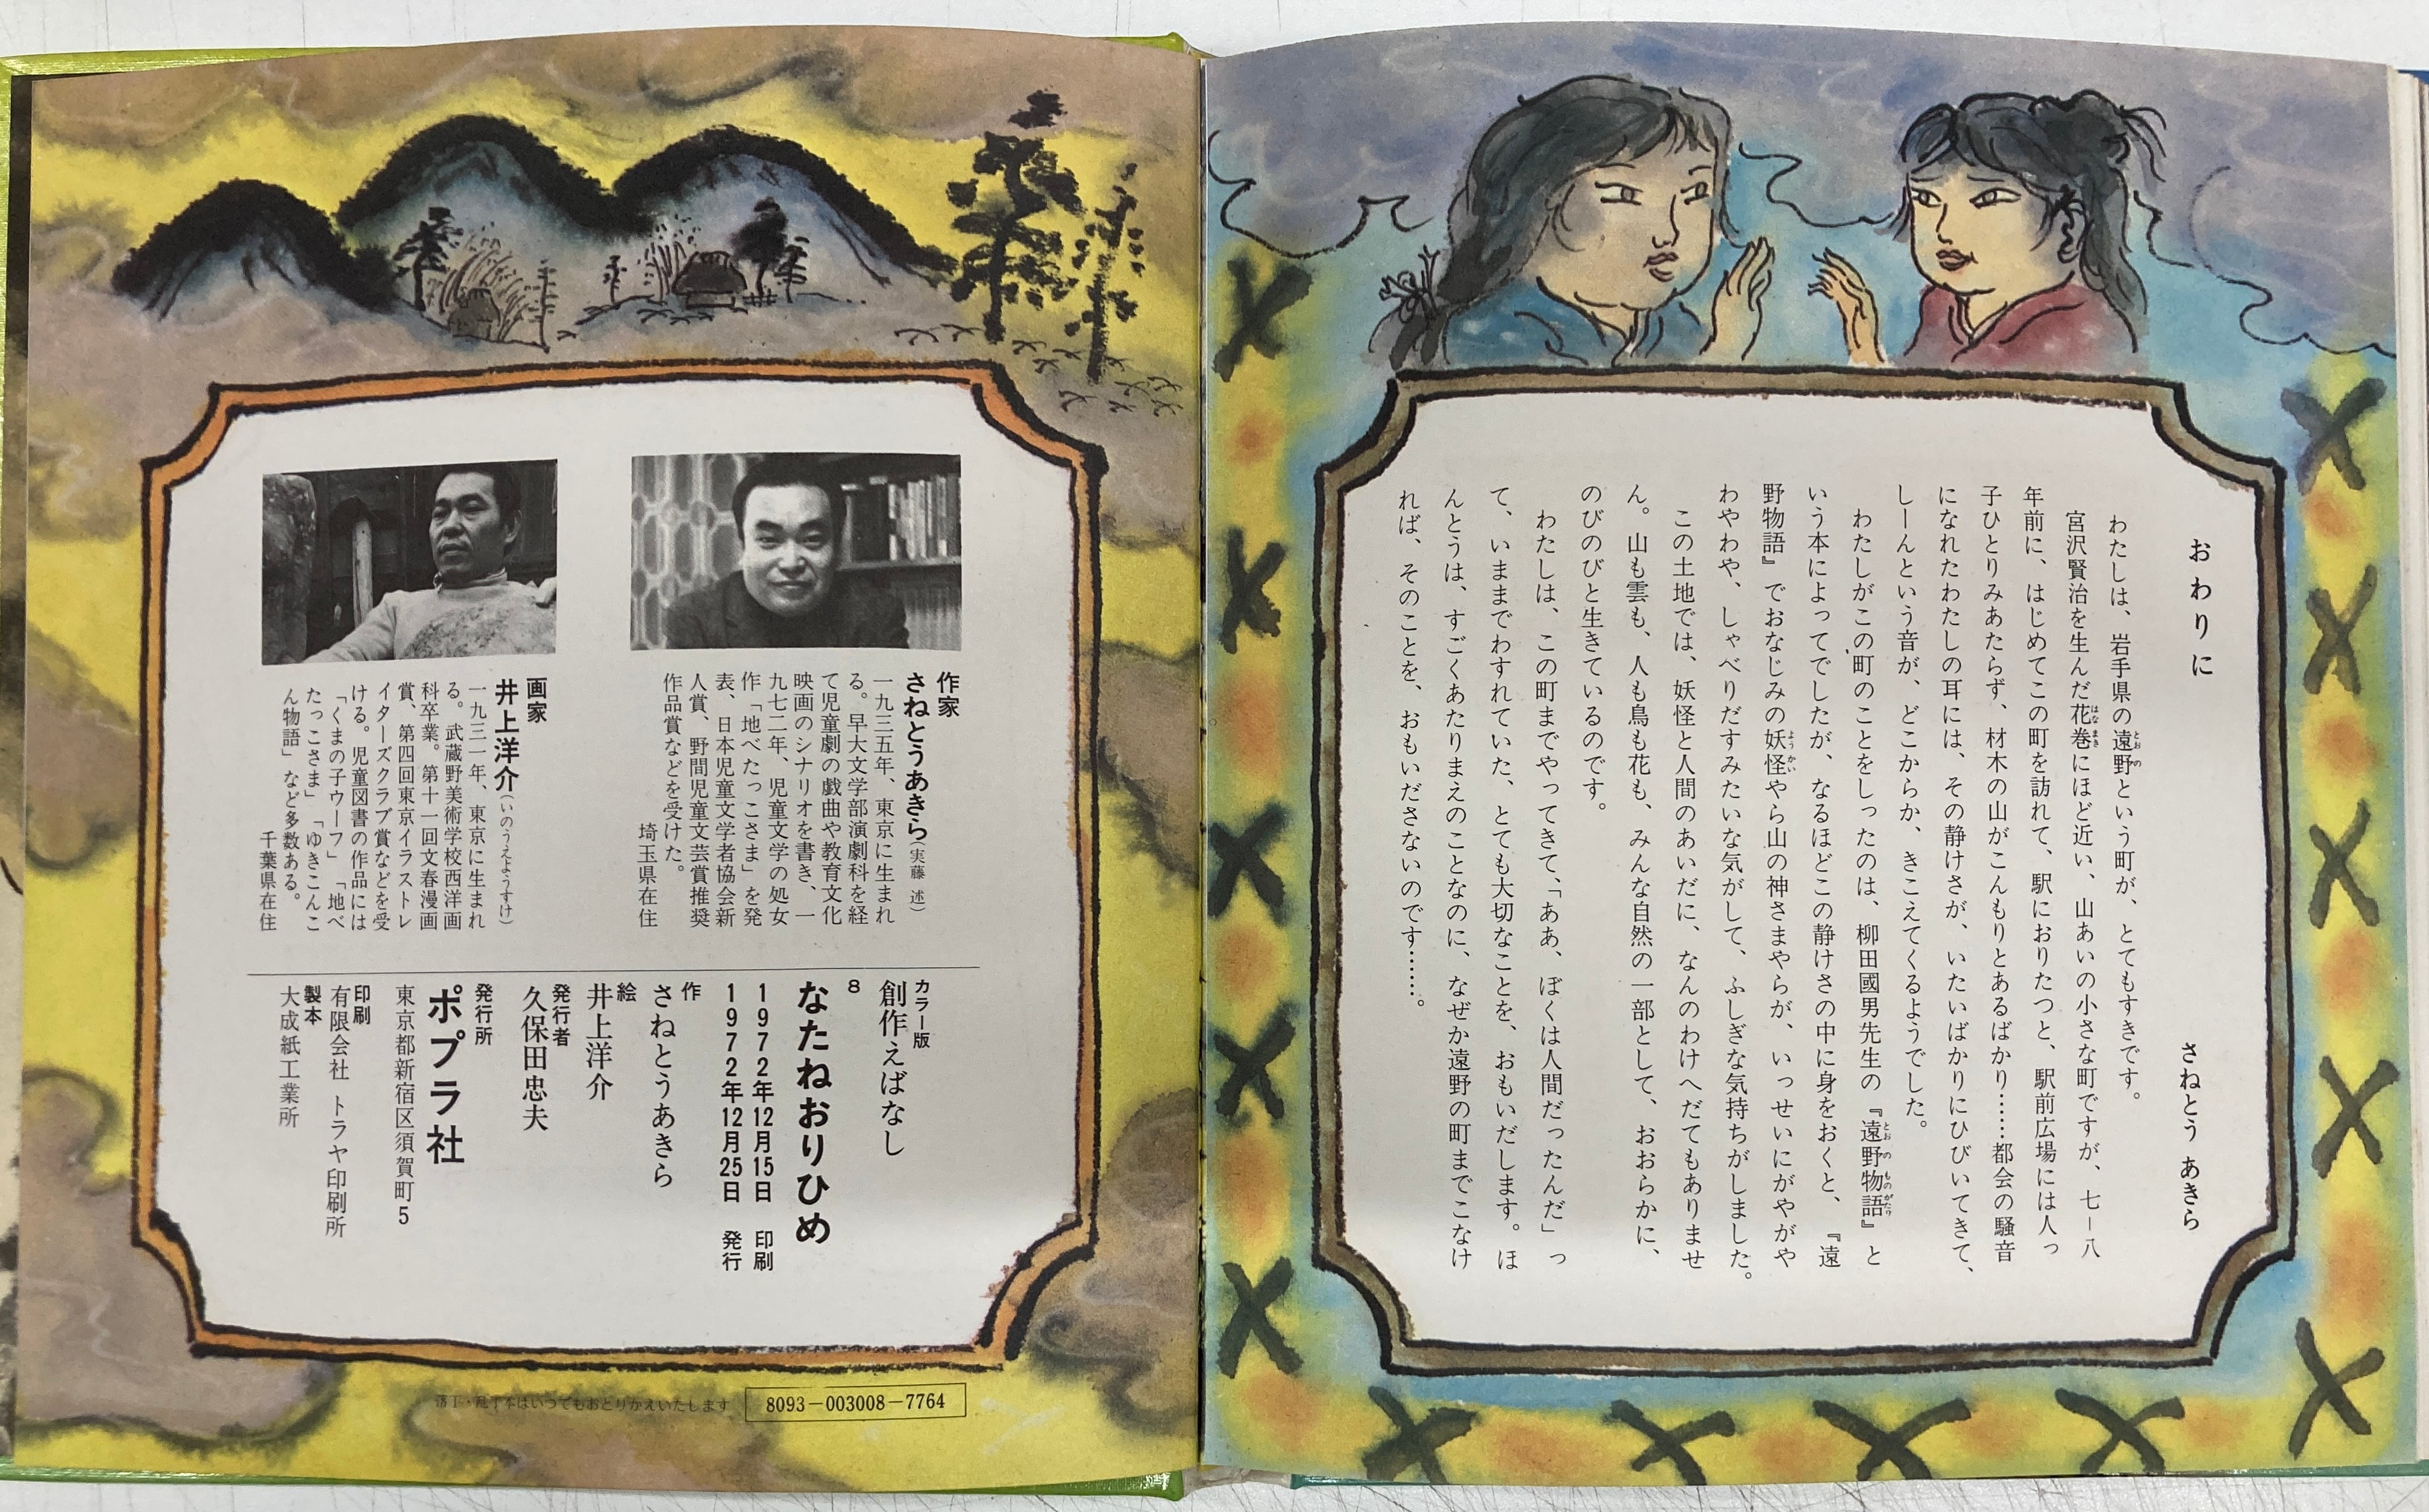 おわりに
さねとう あきら
わたしは、岩手県の遠野という町が、とてもすきです。
宮沢賢治を生んだ花巻にほど近い、山あいの小さな町ですが、七―八
年前に、はじめてこの町を訪れて、駅におりたつと、駅前広場には人っ
子ひとりみあたらず、材木の山がこんもりとあるばかり……都会の騒音
になれたわたしの耳には、その静けさが、いたいばかりにひびいてきて、
しーんという音が、どこからか、きこえてくるようでした。
わたしがこの町のことをしったのは、柳田國男先生の『遠野物語』と
いう本によってでしたが、なるほどこの静けさの中に身をおくと、『遠
野物語』でおなじみの妖怪やら山の神さまやらが、いっせいにがやがや
わやわや、しゃべりだすみたいな気がして、ふしぎな気持ちがしました。
この土地では、妖怪と人間のあいだに、なんのわけへだてもありませ
ん。山も雲も、人も鳥も花も、みんな自然の一部として、おおらかに、
のびのびと生きているのです。
わたしは、この町までやってきて、「ああ、ぼくは人間だったんだ」っ
て、いままでわすれていた、とても大切なことを、おもいだします。ほ
んとうは、すごくあたりまえのことなのに、なぜか遠野の町までこなけ
れば、そのことを、おもいださないのです……。
作家
さねとうあきら(実藤 述)
一九三五年、東京に生まれ
る。早大文学部演劇科を経
て児童劇の戯曲や教育文化
映画のシナリオを書き、一
九七二年、児童文学の処女
作「地べたっこさま」を発
表、日本児童文学者協会新
人賞、野間児童文芸賞推奨
作品賞などを受けた。
埼玉県在住
画家
井上洋介(いのうえようすけ)
一九三一年、東京に生まれ
る。武蔵野美術学校西洋画
科卒業。第十一回文春漫画
賞、第四回東京イラストレ
イターズクラブ賞などを受
ける。児童図書の作品には
「くまの子ウーフ」「地べ
たっこさま」「ゆきこんこ
ん物語」など多数ある。
千葉県在住
カラー版
創作えばなし
8
なたねおりひめ
1972年12月15日 印刷
1972年12月25日 発行
作
さねとうあきら
絵
井上洋介
発行者
久保田忠夫
発行所
ポプラ社
東京都新宿区須賀町5
印刷
有限会社 トラヤ印刷所
製本
大成紙工業所
落丁・乱丁本はいつでもおとりかえいたします
8093-003008-7764